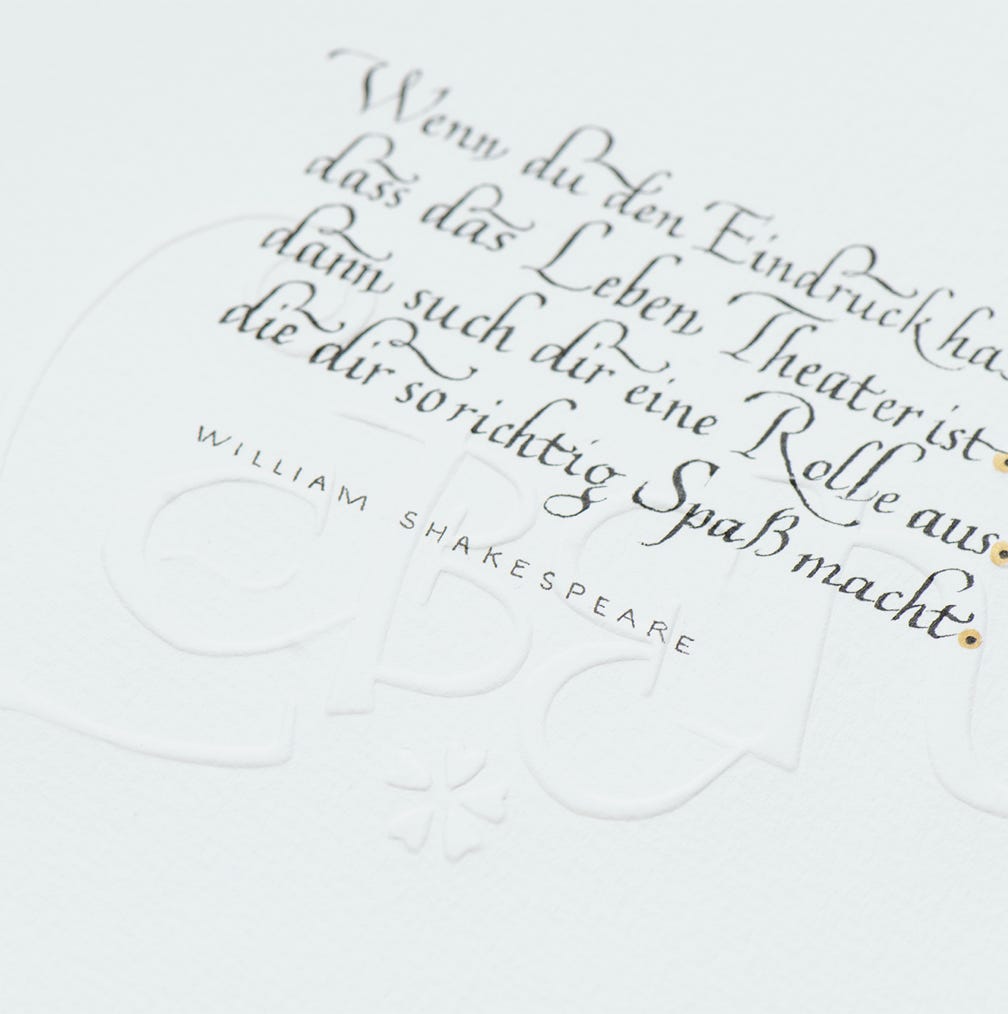 Wenn du den Eindruck has
dass das Leben Theater ist.
dann such dir eine Rolle aus.
die dir so richtig Spaß macht.
WILLIAM SHAKESPEARE